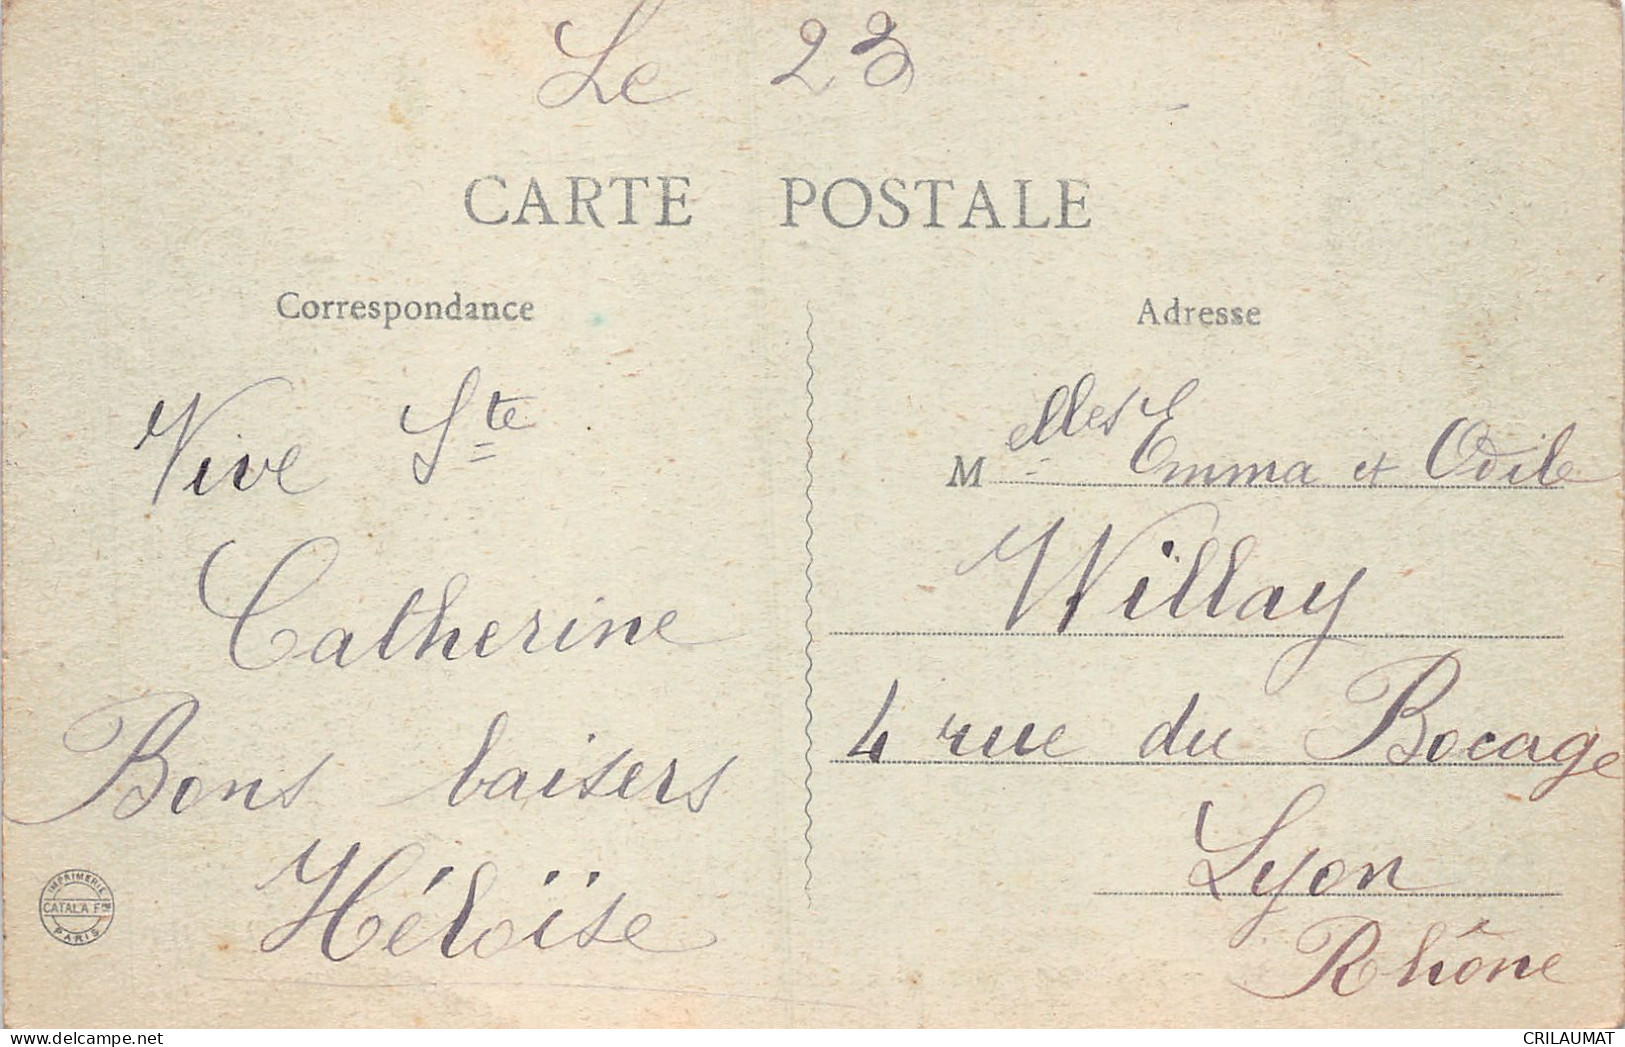 Le 23
CARTE POSTALE
Correspondance
Adresse
Vive Ste
Catherine
Bons baisers
Héloïse
Melles Emma et Odile
Willay
4 rue du Bocage
Lyon
Rhône
IMPRIMERIE
CATALA Fres
PARIS
delcampe.net
CRILAUMAT